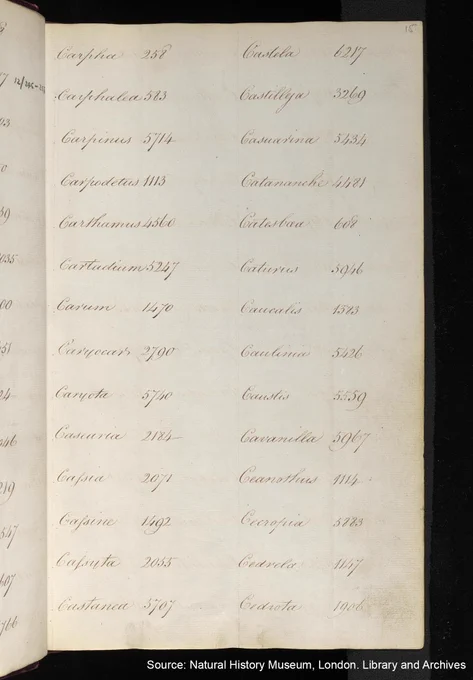 15
Carpha 258 Castela 6217
Carphalea 583 Castilleja 3269
Carpinus 5714 Casuarina 5434
Carpodetus 1113 Catananche 4481
Carthamus 4560 Catesbaa 608
5247 Caturus 5946
Carum 1470 Caucalis 1383
Caryocar 2790 Caulinia 5426
Caryota 5740 Caustis 5559
Casearia 2184 Cavanilla 5967
Cassia 2071 Ceanothus 1114
Cassine 1492 Cecropia 5883
Cassyta 2055 Cedrela 1157
Castanea 5707 Cedrota 1906
Source: Natural History Museum, London. Library and Archives